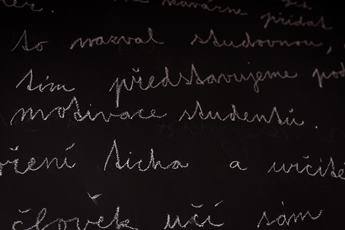 přidat
to nazval studovnou,
tím představujeme pod
motivace studentů.
oření ticha a určité
člověk učí sám